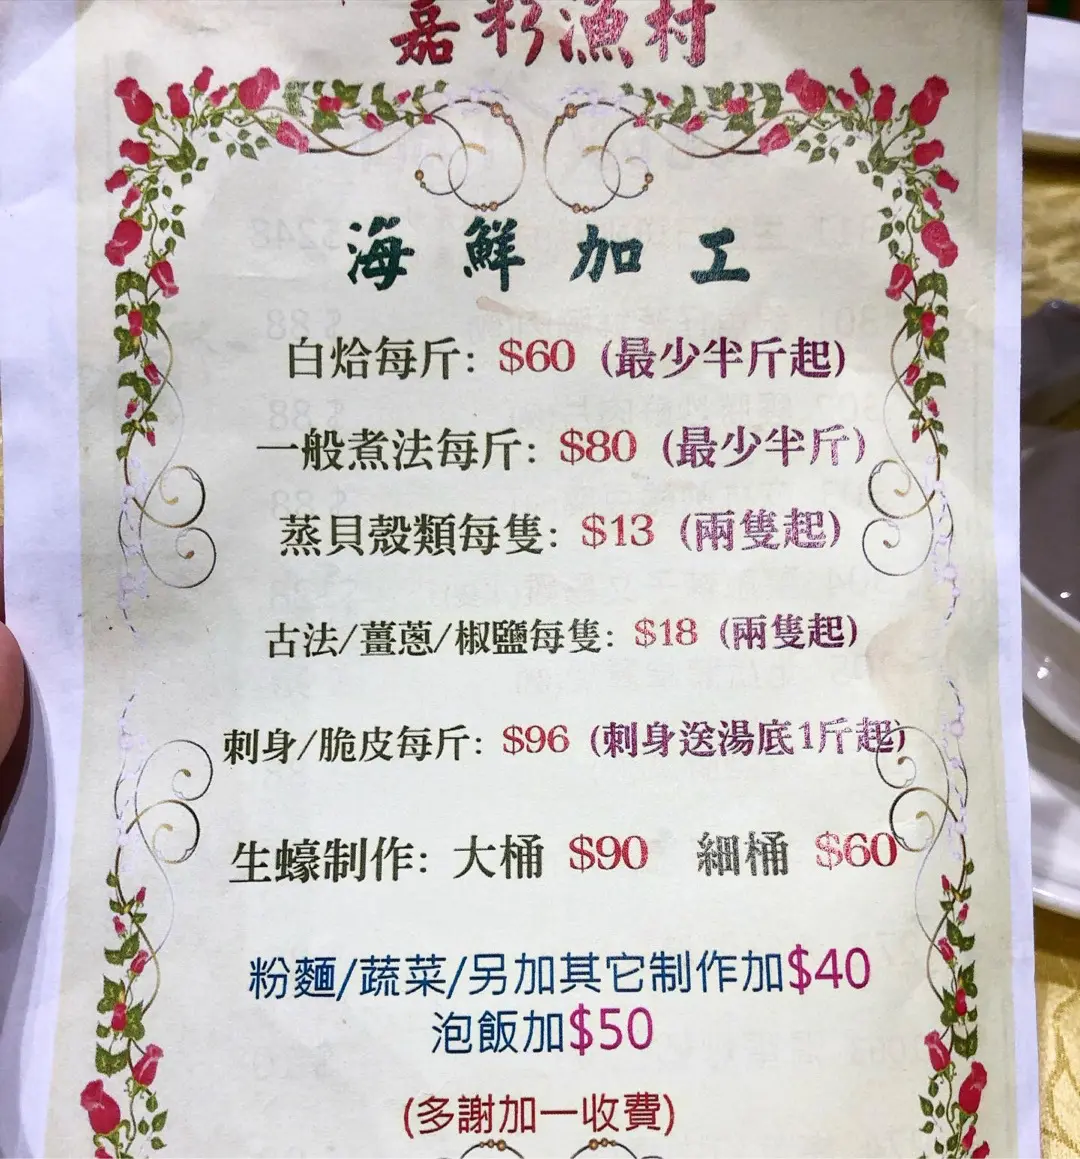 嘉彩漁村
海鮮加工
白烚每斤: $60 (最少半斤起)
一般煮法每斤: $80 (最少半斤)
蒸貝殼類每隻: $13 (兩隻起)
古法/薑蔥/椒鹽每隻: $18 (兩隻起)
刺身/脆皮每斤: $96 (刺身送湯底1斤起)
生蠔制作: 大桶 $90 細桶 $60
粉麵/蔬菜/另加其它制作加$40
泡飯加$50
(多謝加一收費)